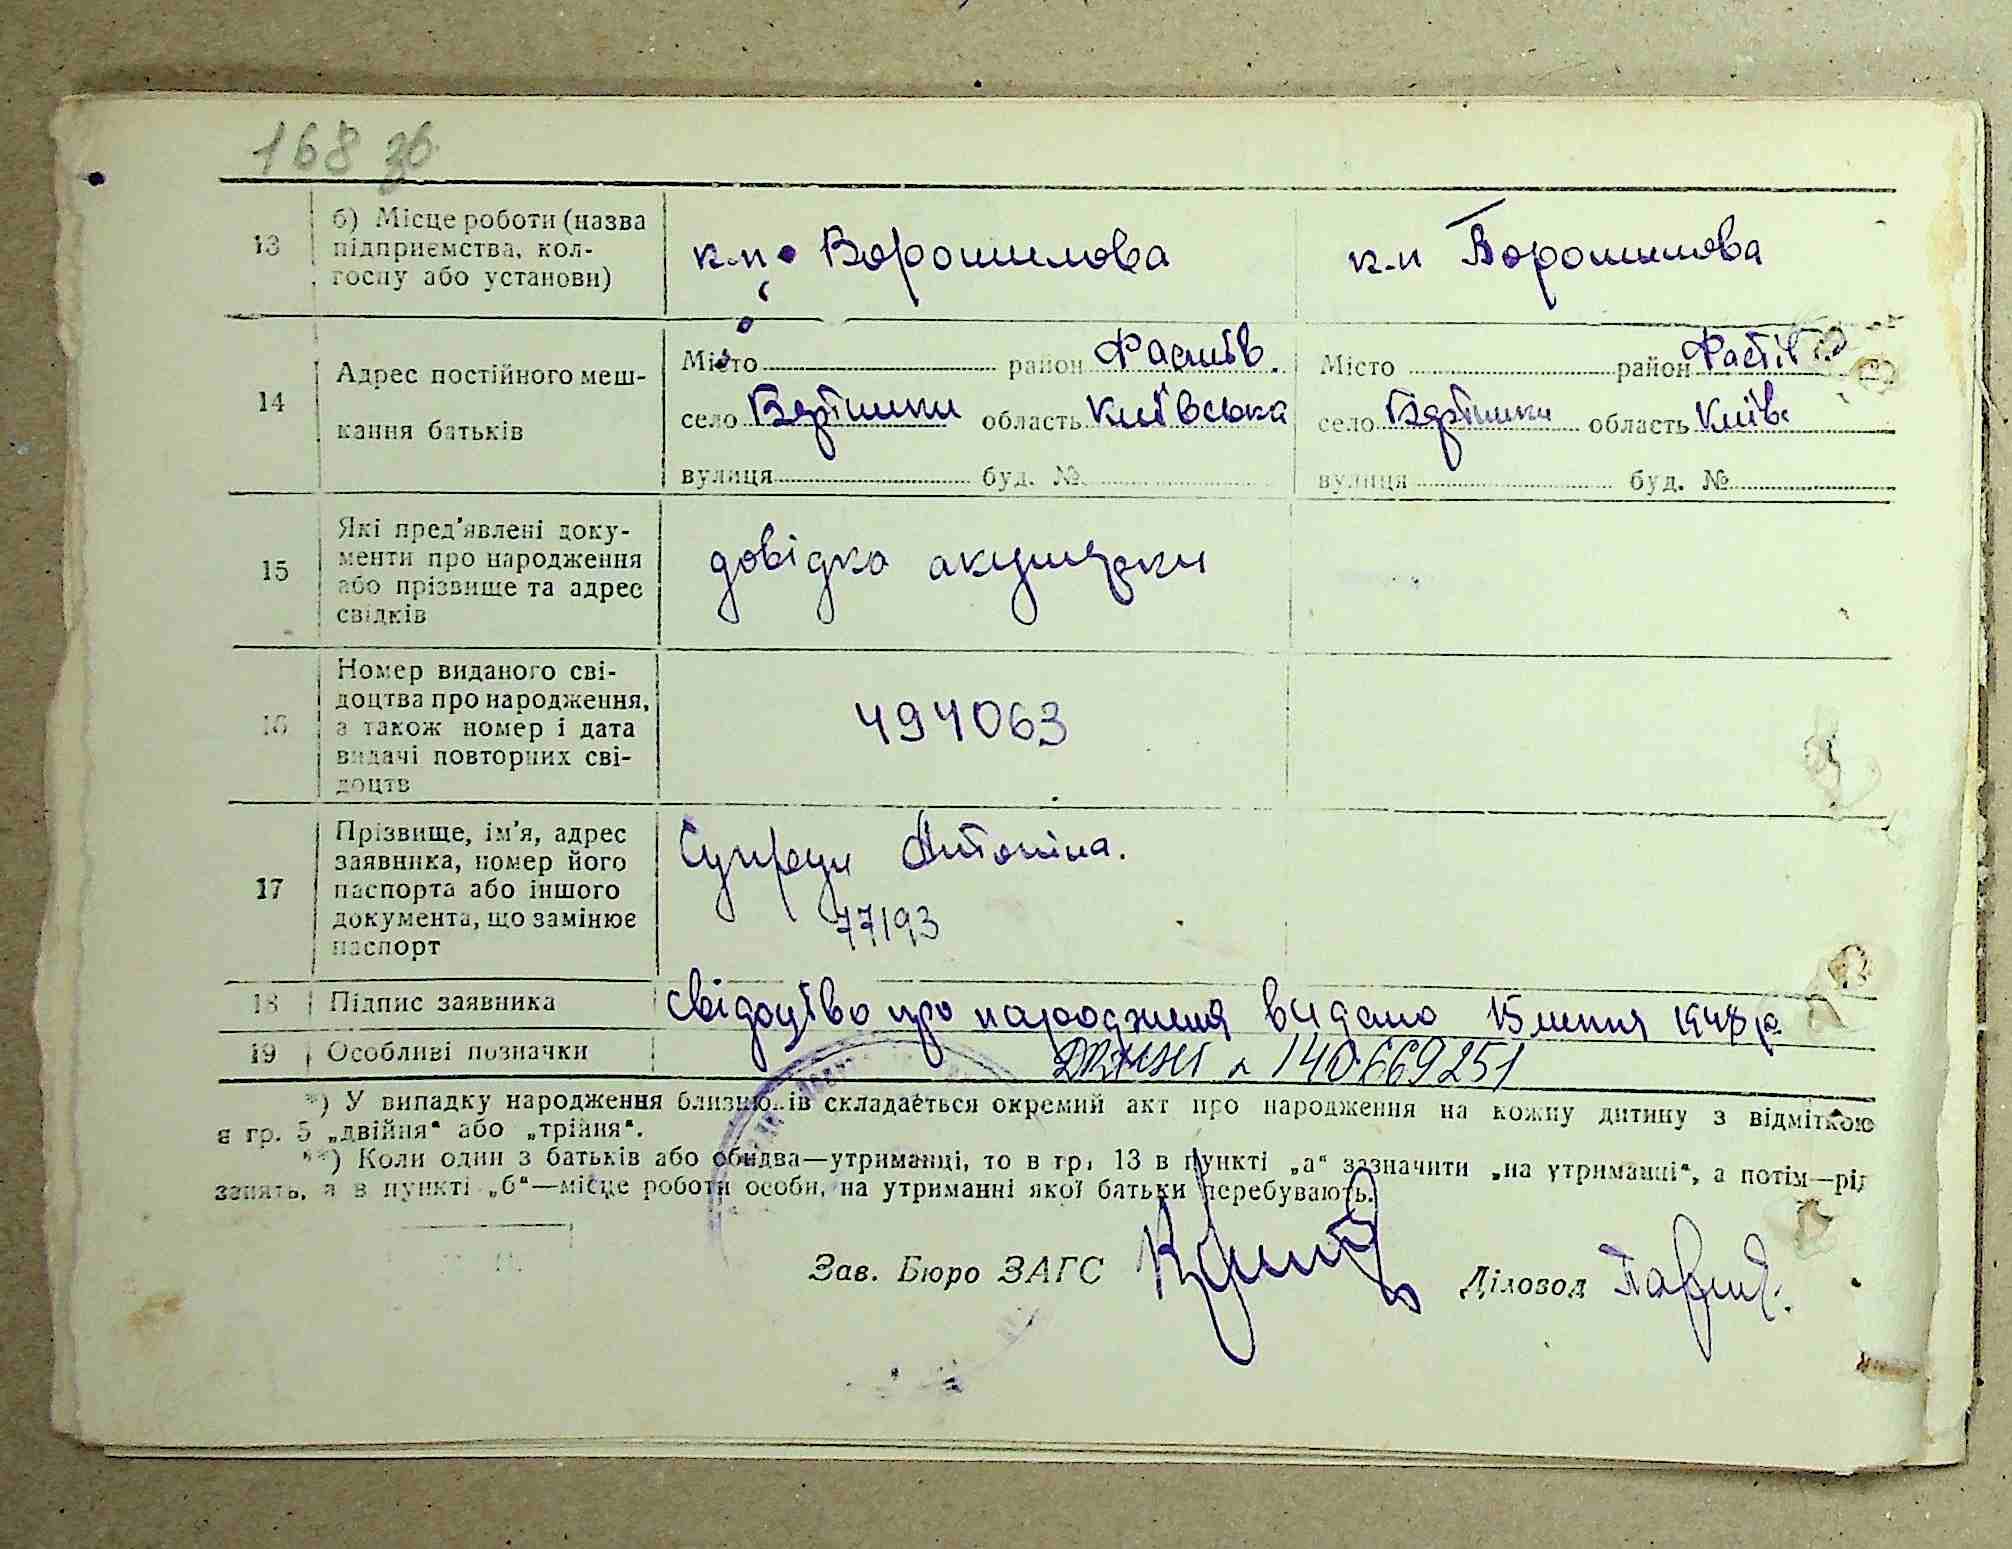 168 зв
13
б) Місце роботи (назва
підприємства, кол-
госпу або установи)
к.п. Ворошилова
к.п Ворошилова
14
Адрес постійного меш-
кання батьків
Місто район Фастів.
село область Київська
вулиця буд. №
Місто район Фастів
село область Київс
вулиця буд. №
15
Які пред'явлені доку-
менти про народження
або прізвище та адрес
свідків
довідка акушерки
16
Номер виданого сві-
доцтва про народження,
а також номер і дата
видачі повторних сві-
доцтв
494063
17
Прізвище, ім'я, адрес
заявника, номер його
паспорта або іншого
документа, що замінює
паспорт
Супрун Антоніна.
77193
18 Підпис заявника
свідоцтво про народження видано 15 липня 1948 р.
19 Особливі позначки
140669251
*) У випадку народження близнюків складається окремий акт про народження на кожну дитину з відміткою
в гр. 5 „двійня“ або „трійня“.
**) Коли один з батьків або обидва—утриманці, то в гр. 13 в пункті „а“ зазначити „на утриманні“, а потім—рід
занять, а в пункті „б“—місце роботи особи, на утриманні якої батьки перебувають.
Зав. Бюро ЗАГС
Діловод